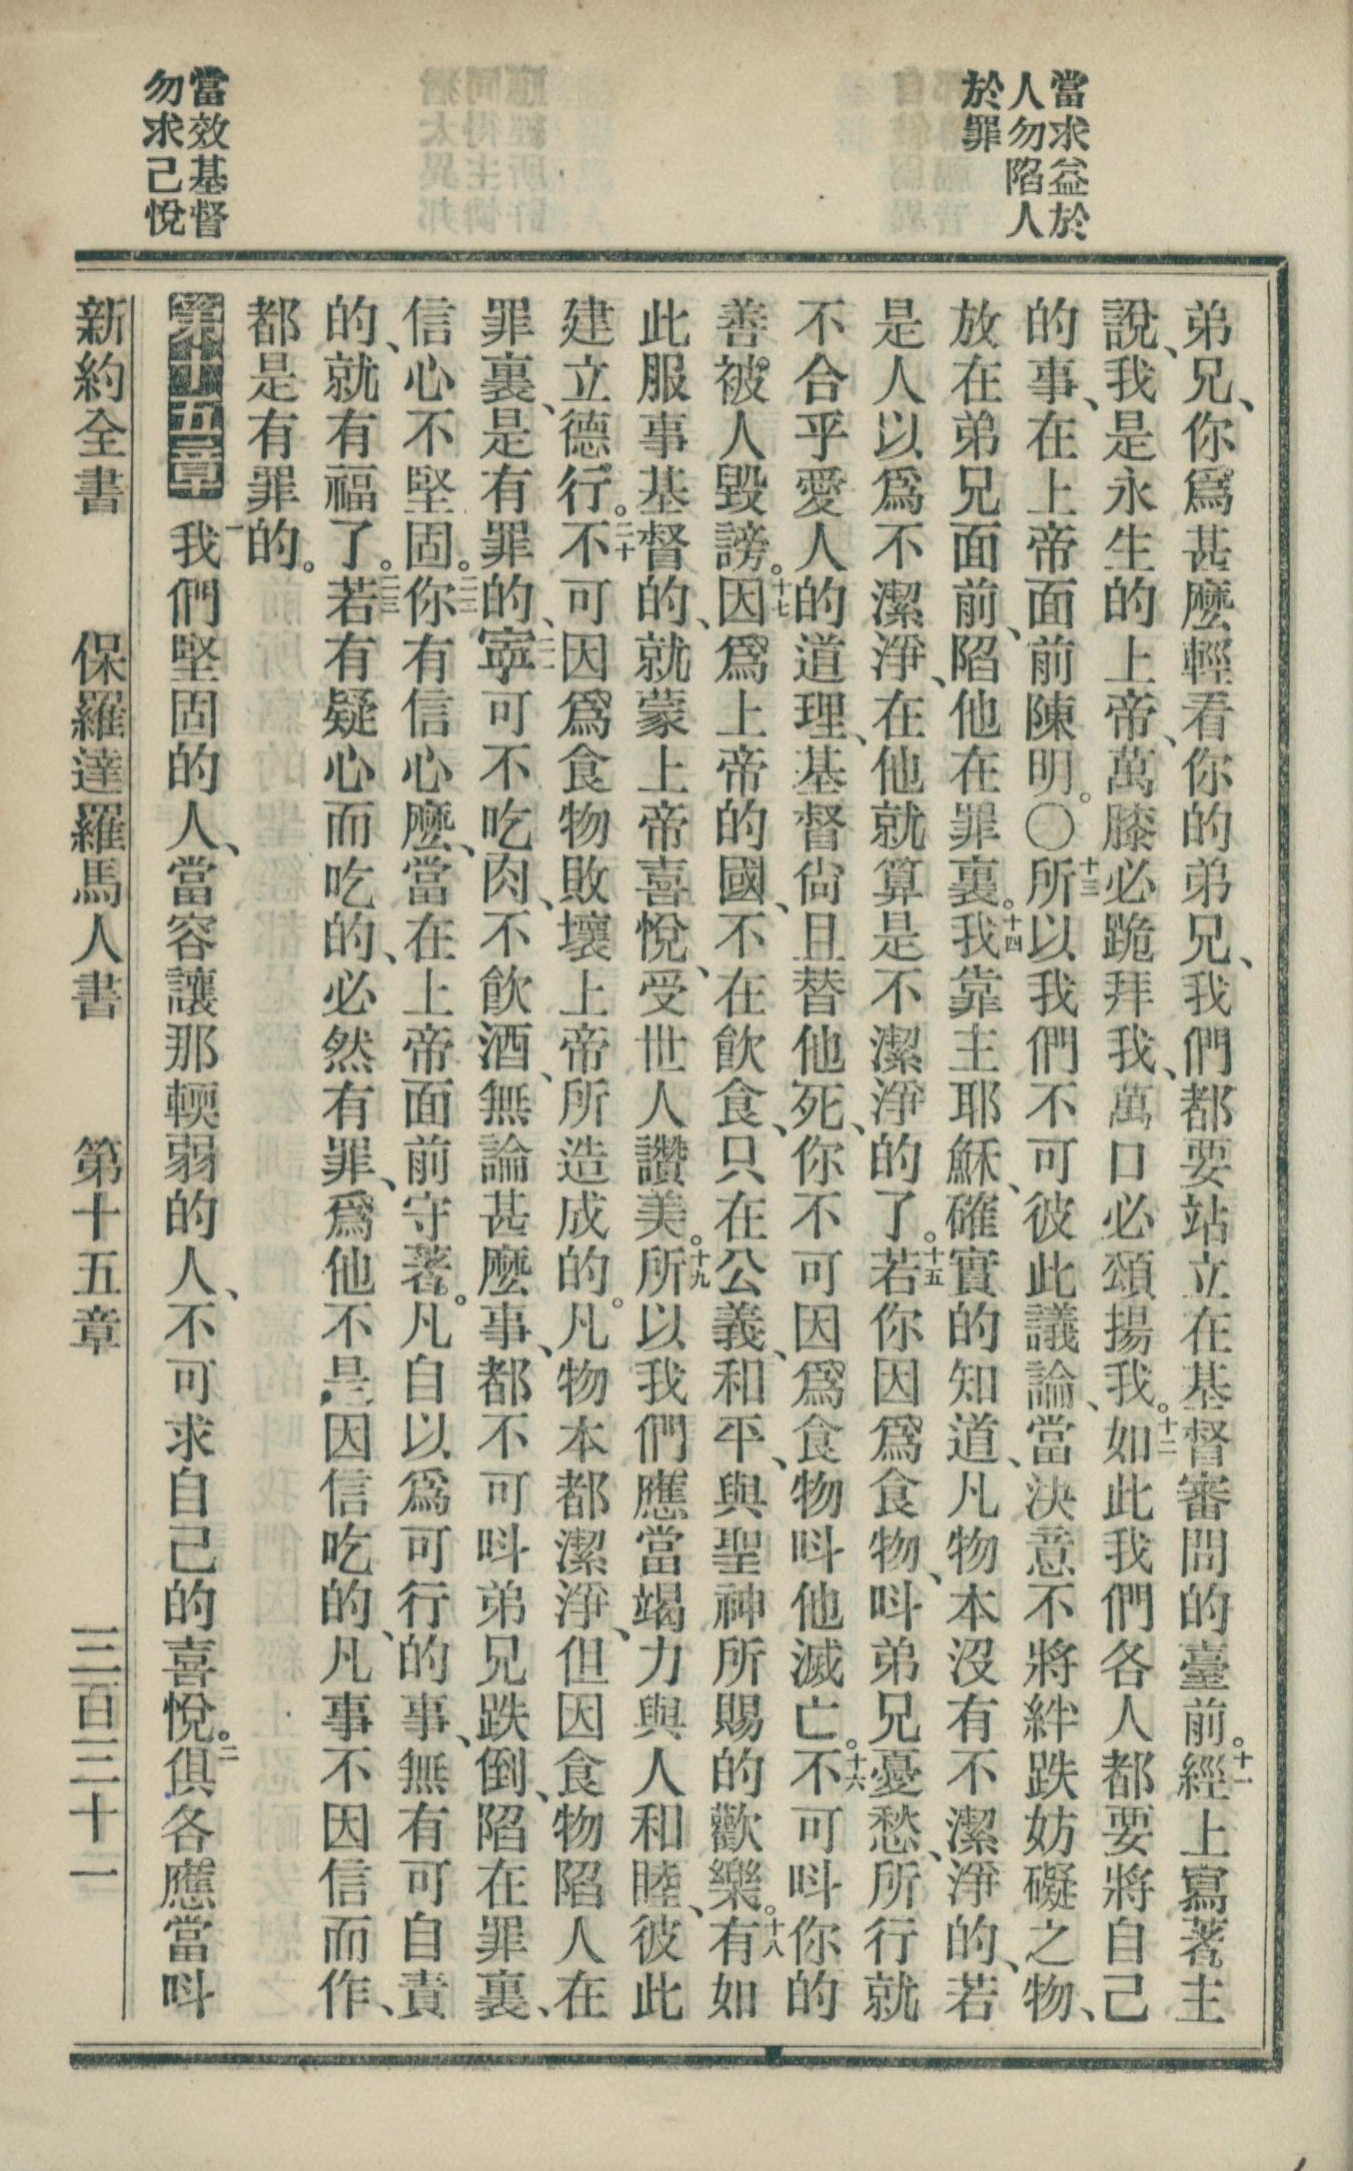 當求益於
人勿陷人
於罪
當效基督
勿求己悅
弟兄、你爲甚麼輕看你的弟兄、我們都要站立在基督審問的臺前。十一經上寫著、主
說、我是永生的上帝、萬膝必跪拜我、萬口必頌揚我。十二如此我們各人都要將自己
的事、在上帝面前陳明。〇十三所以我們不可彼此議論、當決意不將絆跌妨礙之物、
放在弟兄面前、陷他在罪裏。十四我靠主耶穌、確實的知道、凡物本沒有不潔淨的、若
是人以爲不潔淨、在他就算是不潔淨的了。十五若你因爲食物、呌弟兄憂愁、所行就
不合乎愛人的道理、基督尙且替他死、你不可因爲食物呌他滅亡。十六不可呌你的
善、被人毀謗。十七因爲上帝的國、不在飲食、只在公義、和平、與聖神所賜的歡樂。十八有如
此服事基督的、就蒙上帝喜悅、受世人讚美。十九所以我們應當竭力與人和睦、彼此
建立德行。二十不可因爲食物敗壞上帝所造成的。凡物本都潔淨、但因食物陷人在
罪裏、是有罪的、二一寧可不吃肉、不飲酒、無論甚麼事、都不可呌弟兄跌倒、陷在罪裏、
信心不堅固。二二你有信心麼、當在上帝面前守著。凡自以爲可行的事、無有可自責
的、就有福了。二三若有疑心而吃的、必然有罪、爲他不是因信吃的、凡事不因信而作、
都是有罪的。
第十五章 一我們堅固的人、當容讓那輭弱的人、不可求自己的喜悅。二俱各應當呌
新約全書 保羅達羅馬人書 第十五章 三百三十一